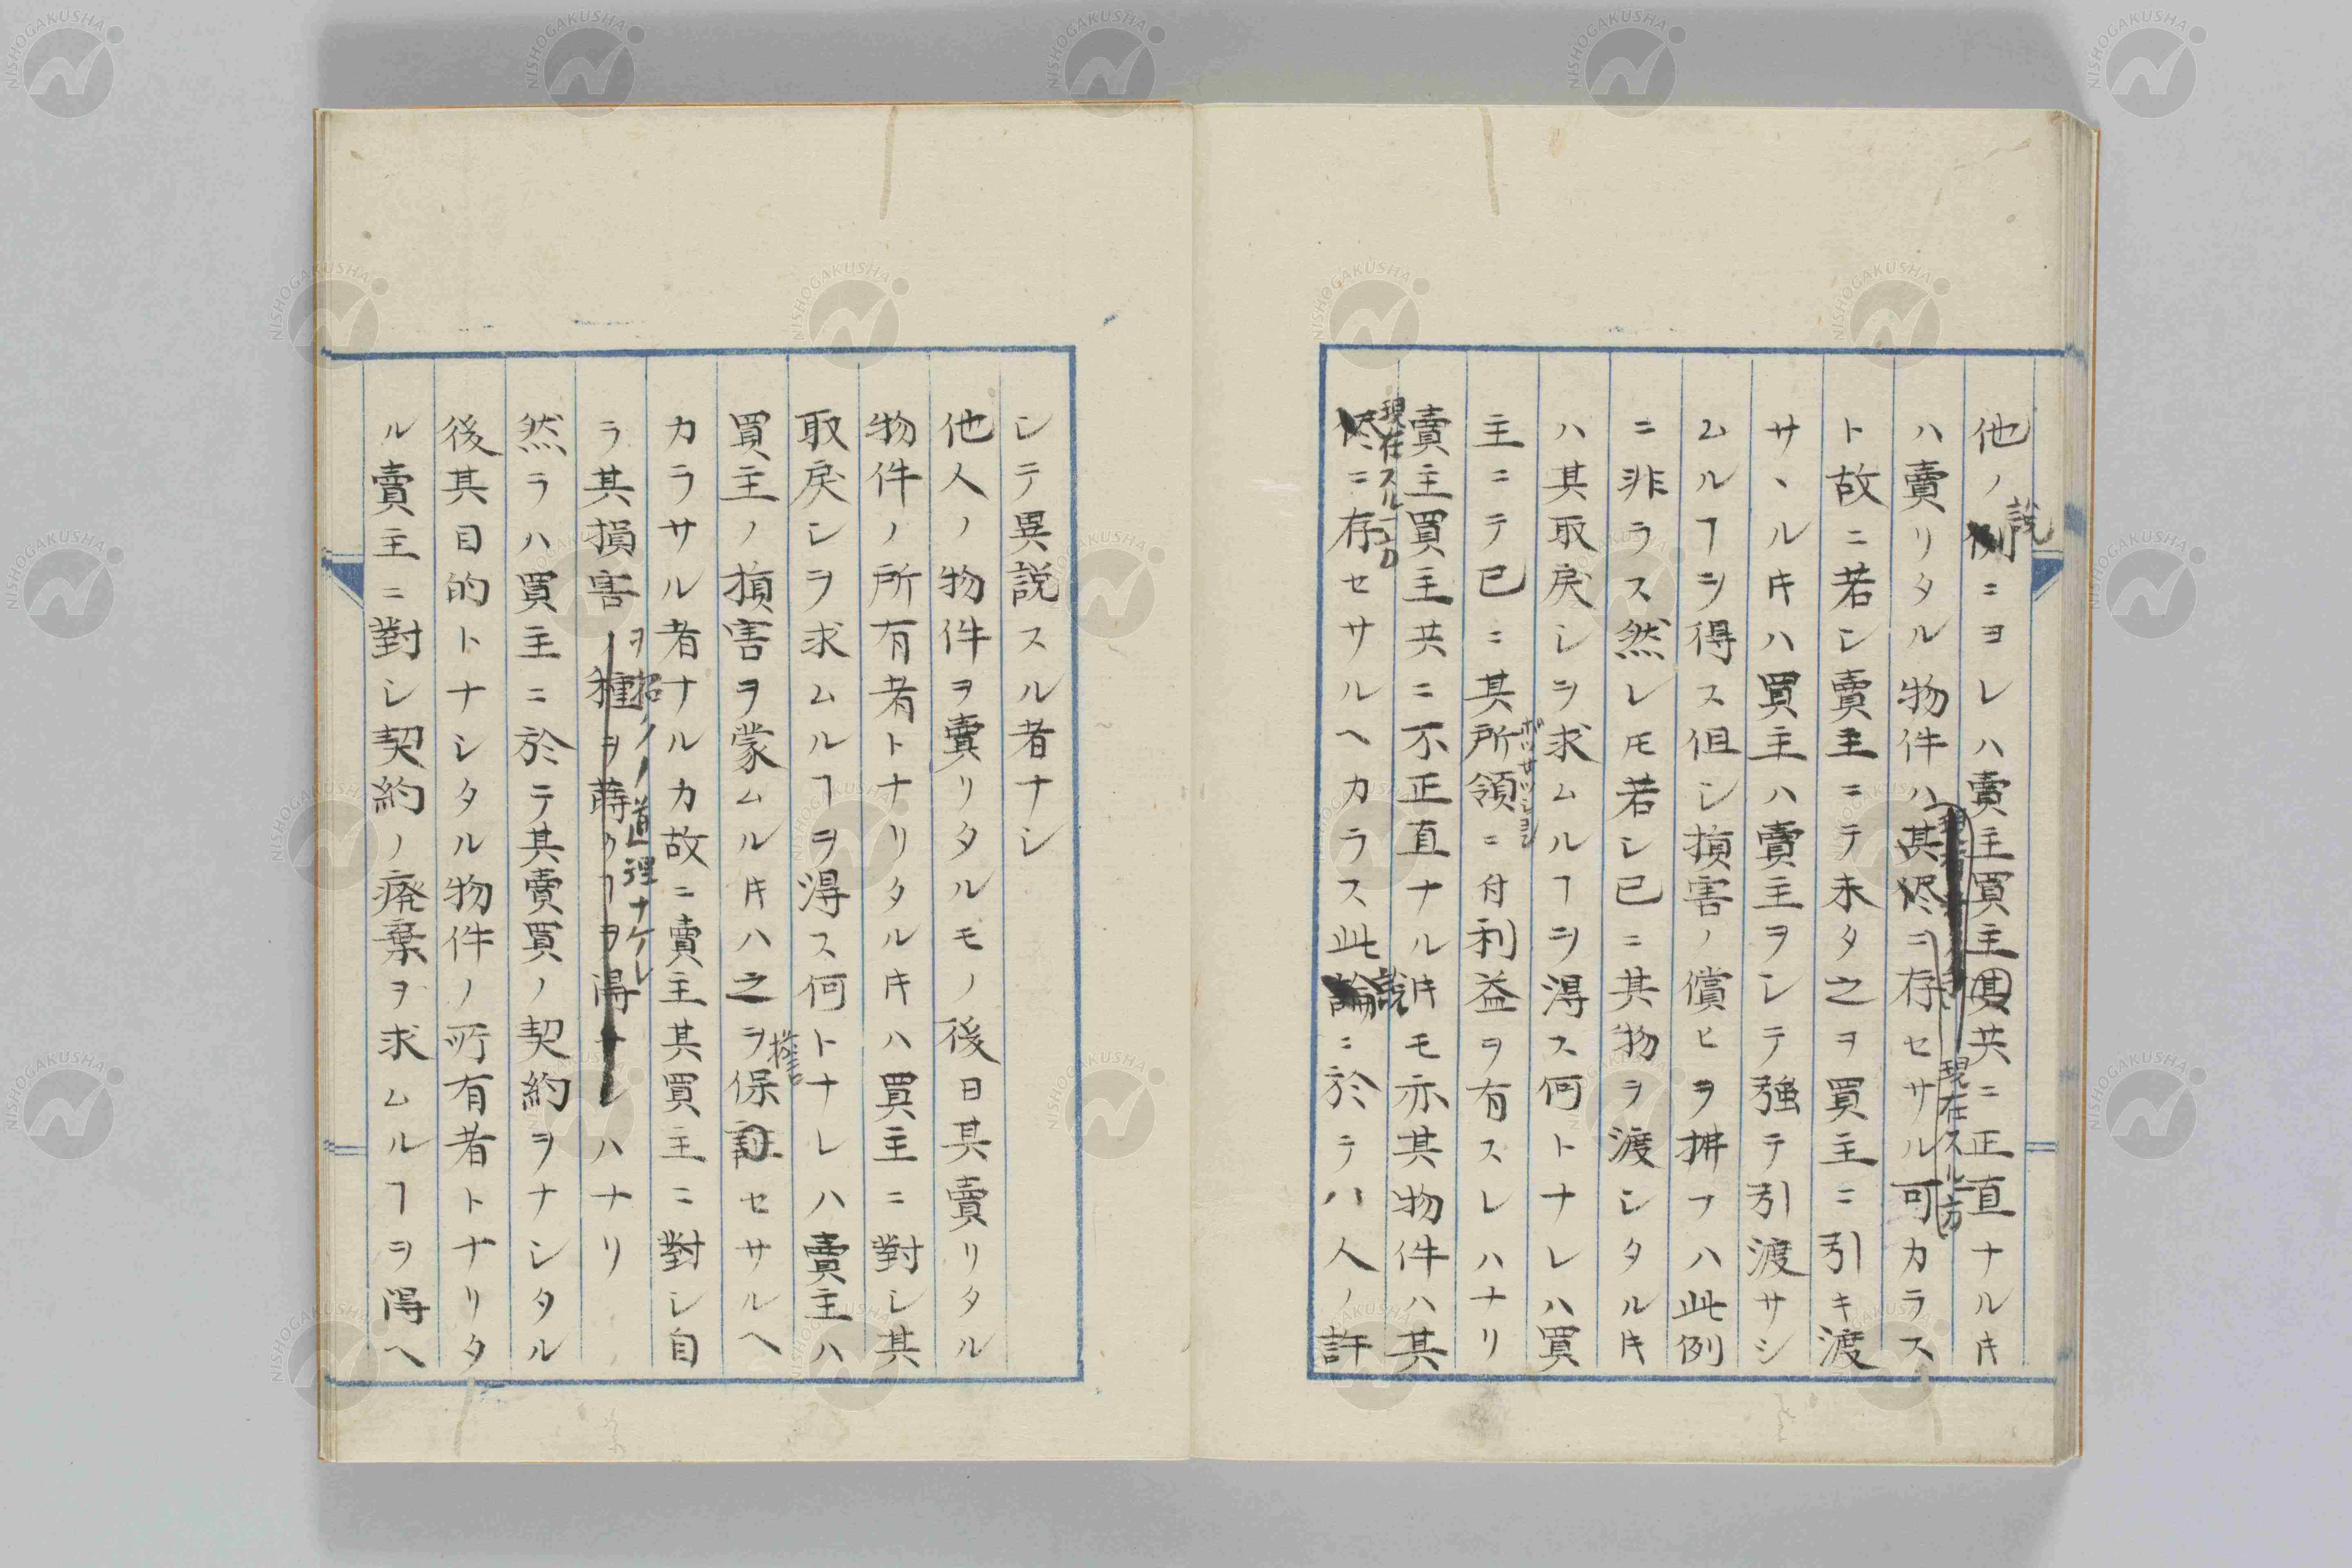 他ノ説ニヨレハ賣主買主共ニ正直ナルキ
ハ賣リタル物件ハ現在スル方存セサル可カラス
ト故ニ若シ賣主ニテ未タ之ヲ買主ニ引キ渡
サヽルキハ買主ハ賣主ヲシテ強テ引渡サシ
ムルヿヲ得ス但シ損害ノ償ヒヲ拂フハ此例
ニ非ラス然レ𪜈若シ已ニ其物ヲ渡シタルキ
ハ其取戻シヲ求ムルヿヲ得ス何トナレハ買
主ニテ已ニ其所領ニ付利益ヲ有スレハナリ
ポツサツシヨン
賣主買主共ニ不正直ナルキモ亦其物件ハ其
現在スル方
侭ニ存セサルヘカラス此説ニ於テハ人ノ許
シテ異説スル者ナシ
他人ノ物件ヲ賣リタルモノ後日其賣リタル
物件ノ所有者トナリタルキハ買主ニ對シ其
取戻シヲ求ムルヿヲ得ス何トナレハ賣主ハ
買主ノ損害ヲ蒙ムルキハ之ヲ保証セサルヘ
カラサル者ナルカ故ニ賣主其買主ニ對シ自
ラ其損害ヲ招クノ道理ナケレハナリ
ノ種ヲ蒔クヿヲ得ナレ
然ラハ買主ニ於テ其賣買ノ契約ヲナシタル
後其目的トナシタル物件ノ所有者トナリタ
ル賣主ニ對シ契約ノ廃棄ヲ求ムルヿヲ得ヘ
NISHOGAKUSHA